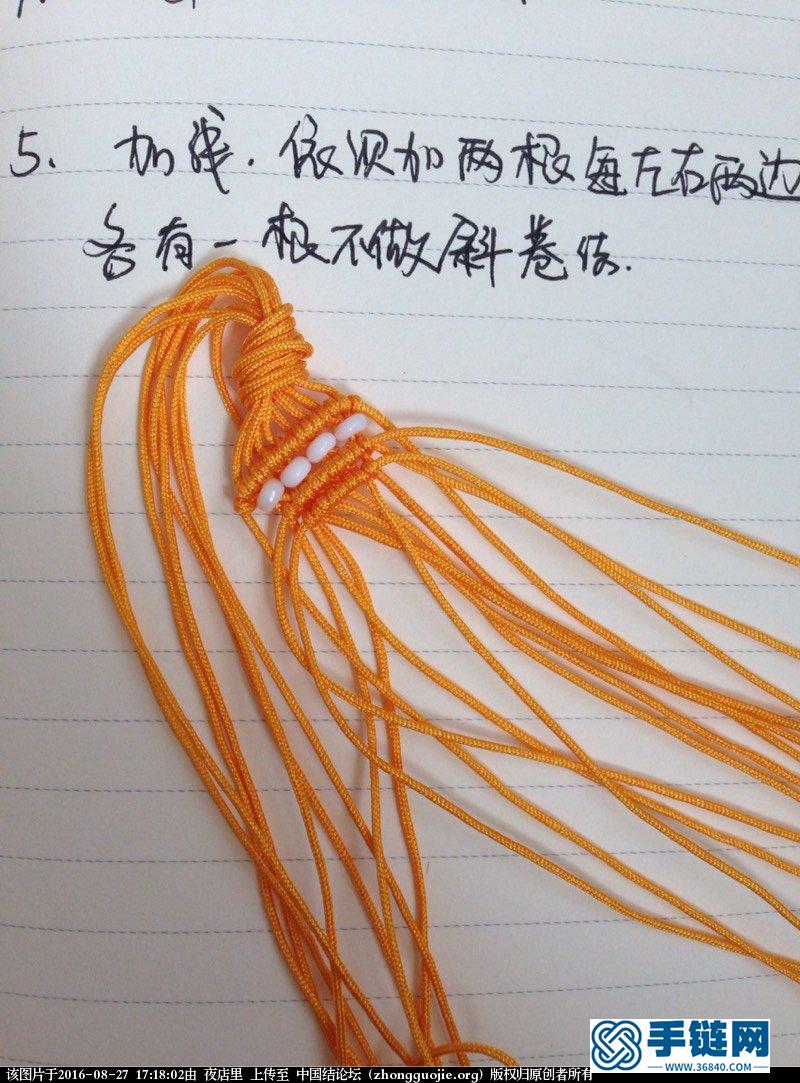 5. 加线. 依次加两根每左右两边
各有一根不做斜卷结.
手链网
www.36840.com
该图片于2016-08-27 17:18:02由 夜店里 上传至 中国结论坛 (zhongguojie.org) 版权归原创者所有